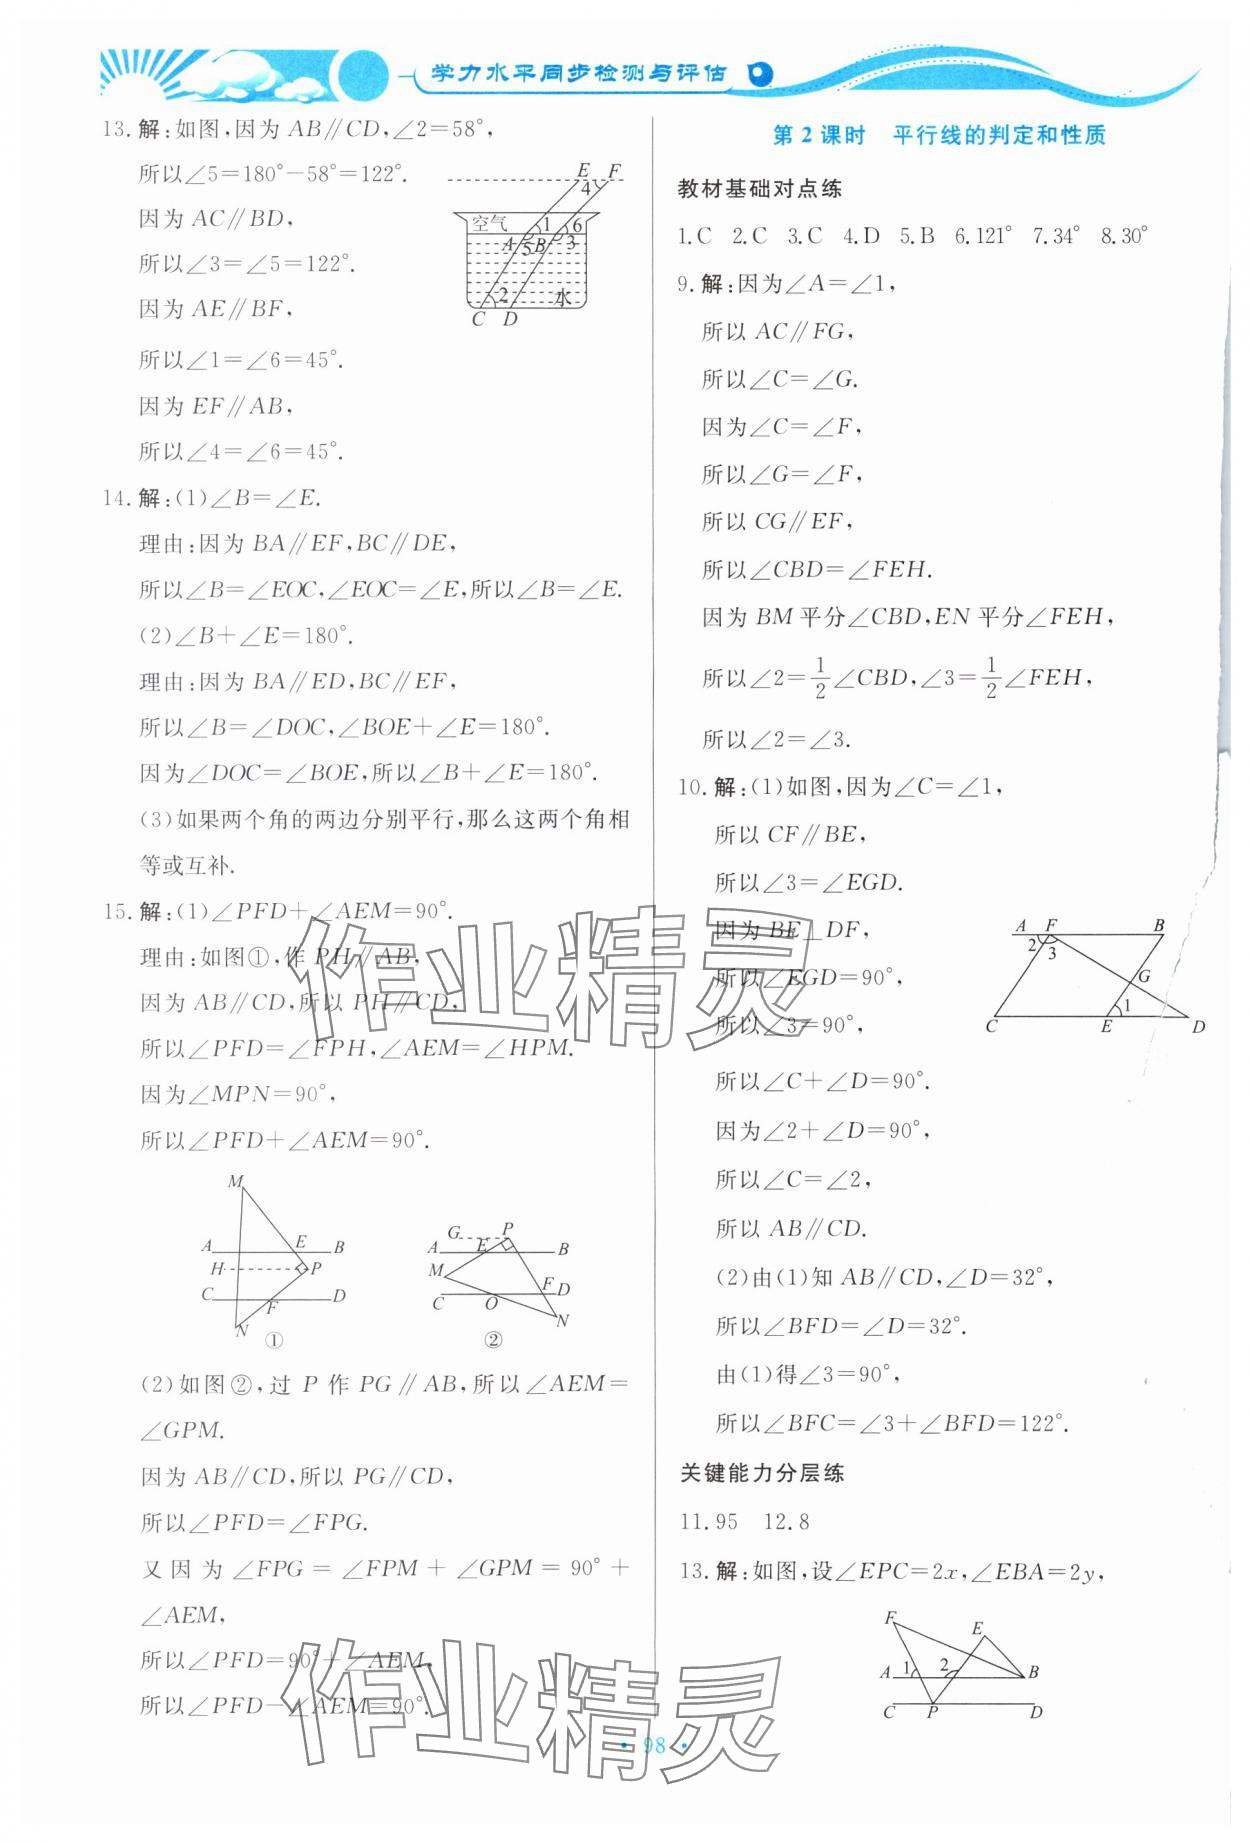 学力水平同步检测与评估
13. 解:如图,因为 AB∥CD,∠2=58°,
所以∠5=180°-58°=122°.
因为 AC∥BD,
所以∠3=∠5=122°.
因为 AE∥BF,
所以∠1=∠6=45°.
因为 EF∥AB,
所以∠4=∠6=45°.
E F
4
空气 1 6
A 5 B 3
2 水
C D
14. 解:(1)∠B=∠E.
理由:因为 BA∥EF,BC∥DE,
所以∠B=∠EOC,∠EOC=∠E,所以∠B=∠E.
(2)∠B+∠E=180°.
理由:因为 BA∥ED,BC∥EF,
所以∠B=∠DOC,∠BOE+∠E=180°.
因为∠DOC=∠BOE,所以∠B+∠E=180°.
(3)如果两个角的两边分别平行,那么这两个角相
等或互补.
15. 解:(1)∠PFD+∠AEM=90°.
理由:如图①,作 PH∥AB,
因为 AB∥CD,所以 PH∥CD,
所以∠PFD=∠FPH,∠AEM=∠HPM.
因为∠MPN=90°,
所以∠PFD+∠AEM=90°.
M
A E B
H P
C F D
N ①
G P
A E B
M F D
C O N
②
(2)如图②,过 P 作 PG∥AB,所以∠AEM=
∠GPM.
因为 AB∥CD,所以 PG∥CD,
所以∠PFD=∠FPG.
又因为∠FPG=∠FPM+∠GPM=90°+
∠AEM,
所以∠PFD=90°+∠AEM,
所以∠PFD-∠AEM=90°.
第 2 课时 平行线的判定和性质
教材基础对点练
1.C 2.C 3.C 4.D 5.B 6.121° 7.34° 8.30°
9. 解:因为∠A=∠1,
所以 AC∥FG,
所以∠C=∠G.
因为∠C=∠F,
所以∠G=∠F,
所以 CG∥EF,
所以∠CBD=∠FEH.
因为 BM 平分∠CBD,EN 平分∠FEH,
所以∠2=1/2∠CBD,∠3=1/2∠FEH,
所以∠2=∠3.
10. 解:(1)如图,因为∠C=∠1,
所以 CF∥BE,
所以∠3=∠EGD.
因为 BE⊥DF,
所以∠EGD=90°,
所以∠3=90°,
所以∠C+∠D=90°.
因为∠2+∠D=90°,
所以∠C=∠2,
所以 AB∥CD.
A F B
2 3
G
1
C E D
(2)由(1)知 AB∥CD,∠D=32°,
所以∠BFD=∠D=32°.
由(1)得∠3=90°,
所以∠BFC=∠3+∠BFD=122°.
关键能力分层练
11.95 12.8
13. 解:如图,设∠EPC=2x,∠EBA=2y,
F E
A 1 2 B
C P D
作业精灵
作业精灵
• 98 •